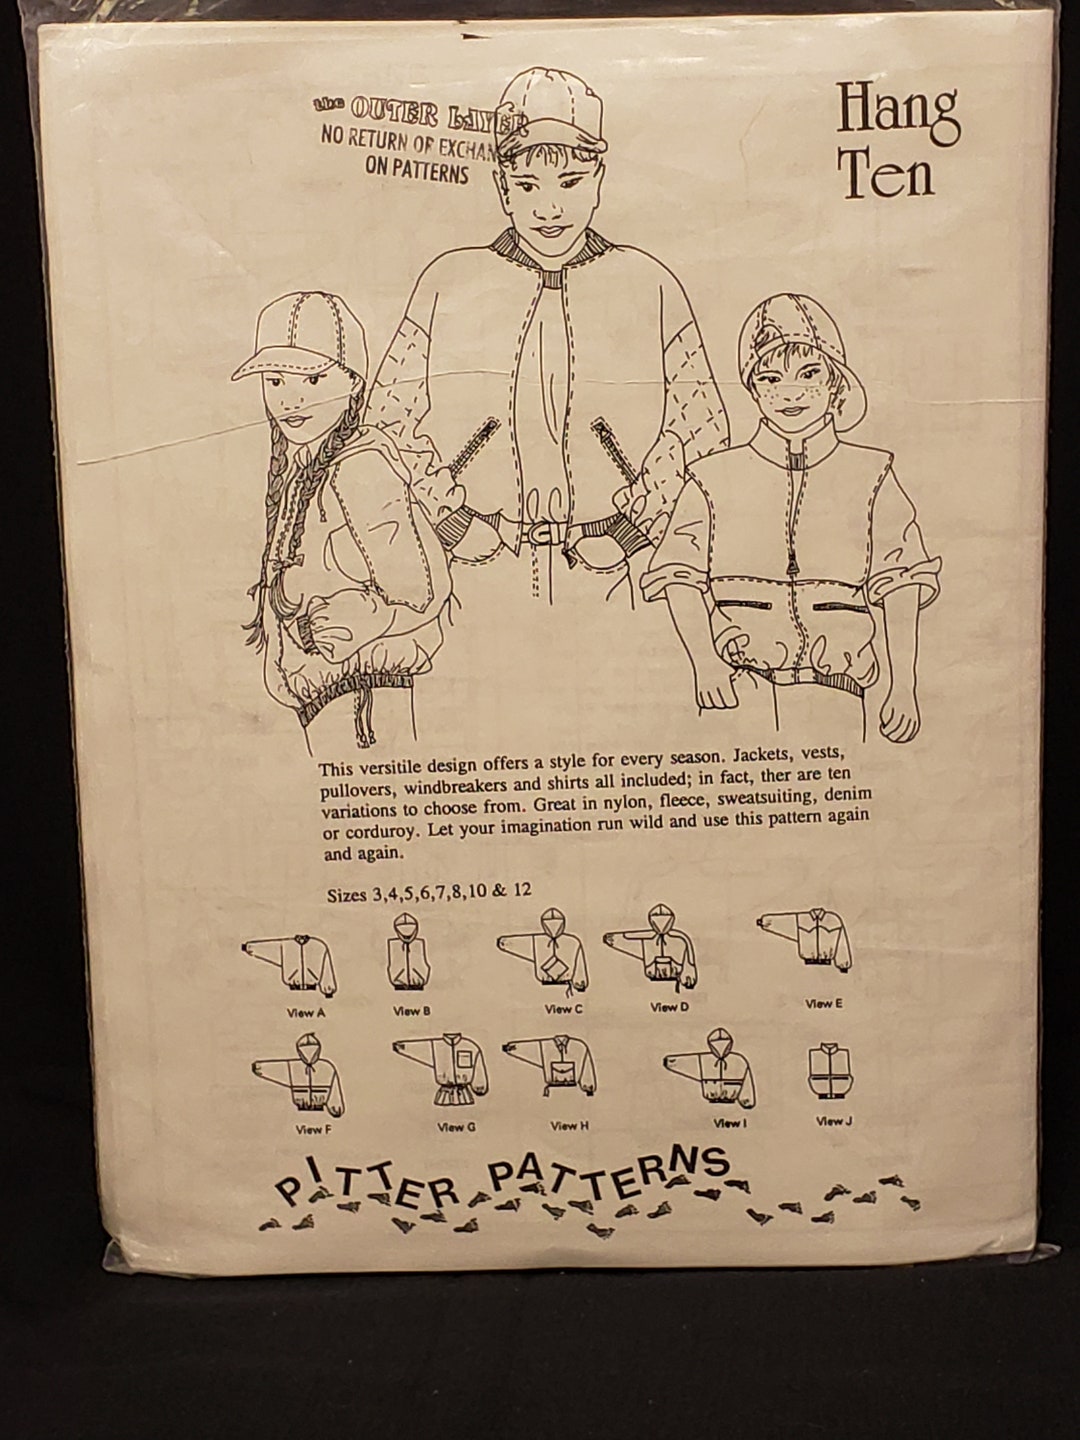 the OUTER LAYER
NO RETURN OF EXCHAN
ON PATTERNS
Hang
Ten
This versitile design offers a style for every season. Jackets, vests,
pullovers, windbreakers and shirts all included; in fact, ther are ten
variations to choose from. Great in nylon, fleece, sweatsuiting, denim
or corduroy. Let your imagination run wild and use this pattern again
and again.
Sizes 3,4,5,6,7,8,10 & 12
View A View B View C View D View E
View F View G View H View I View J
PITTER PATTERNS